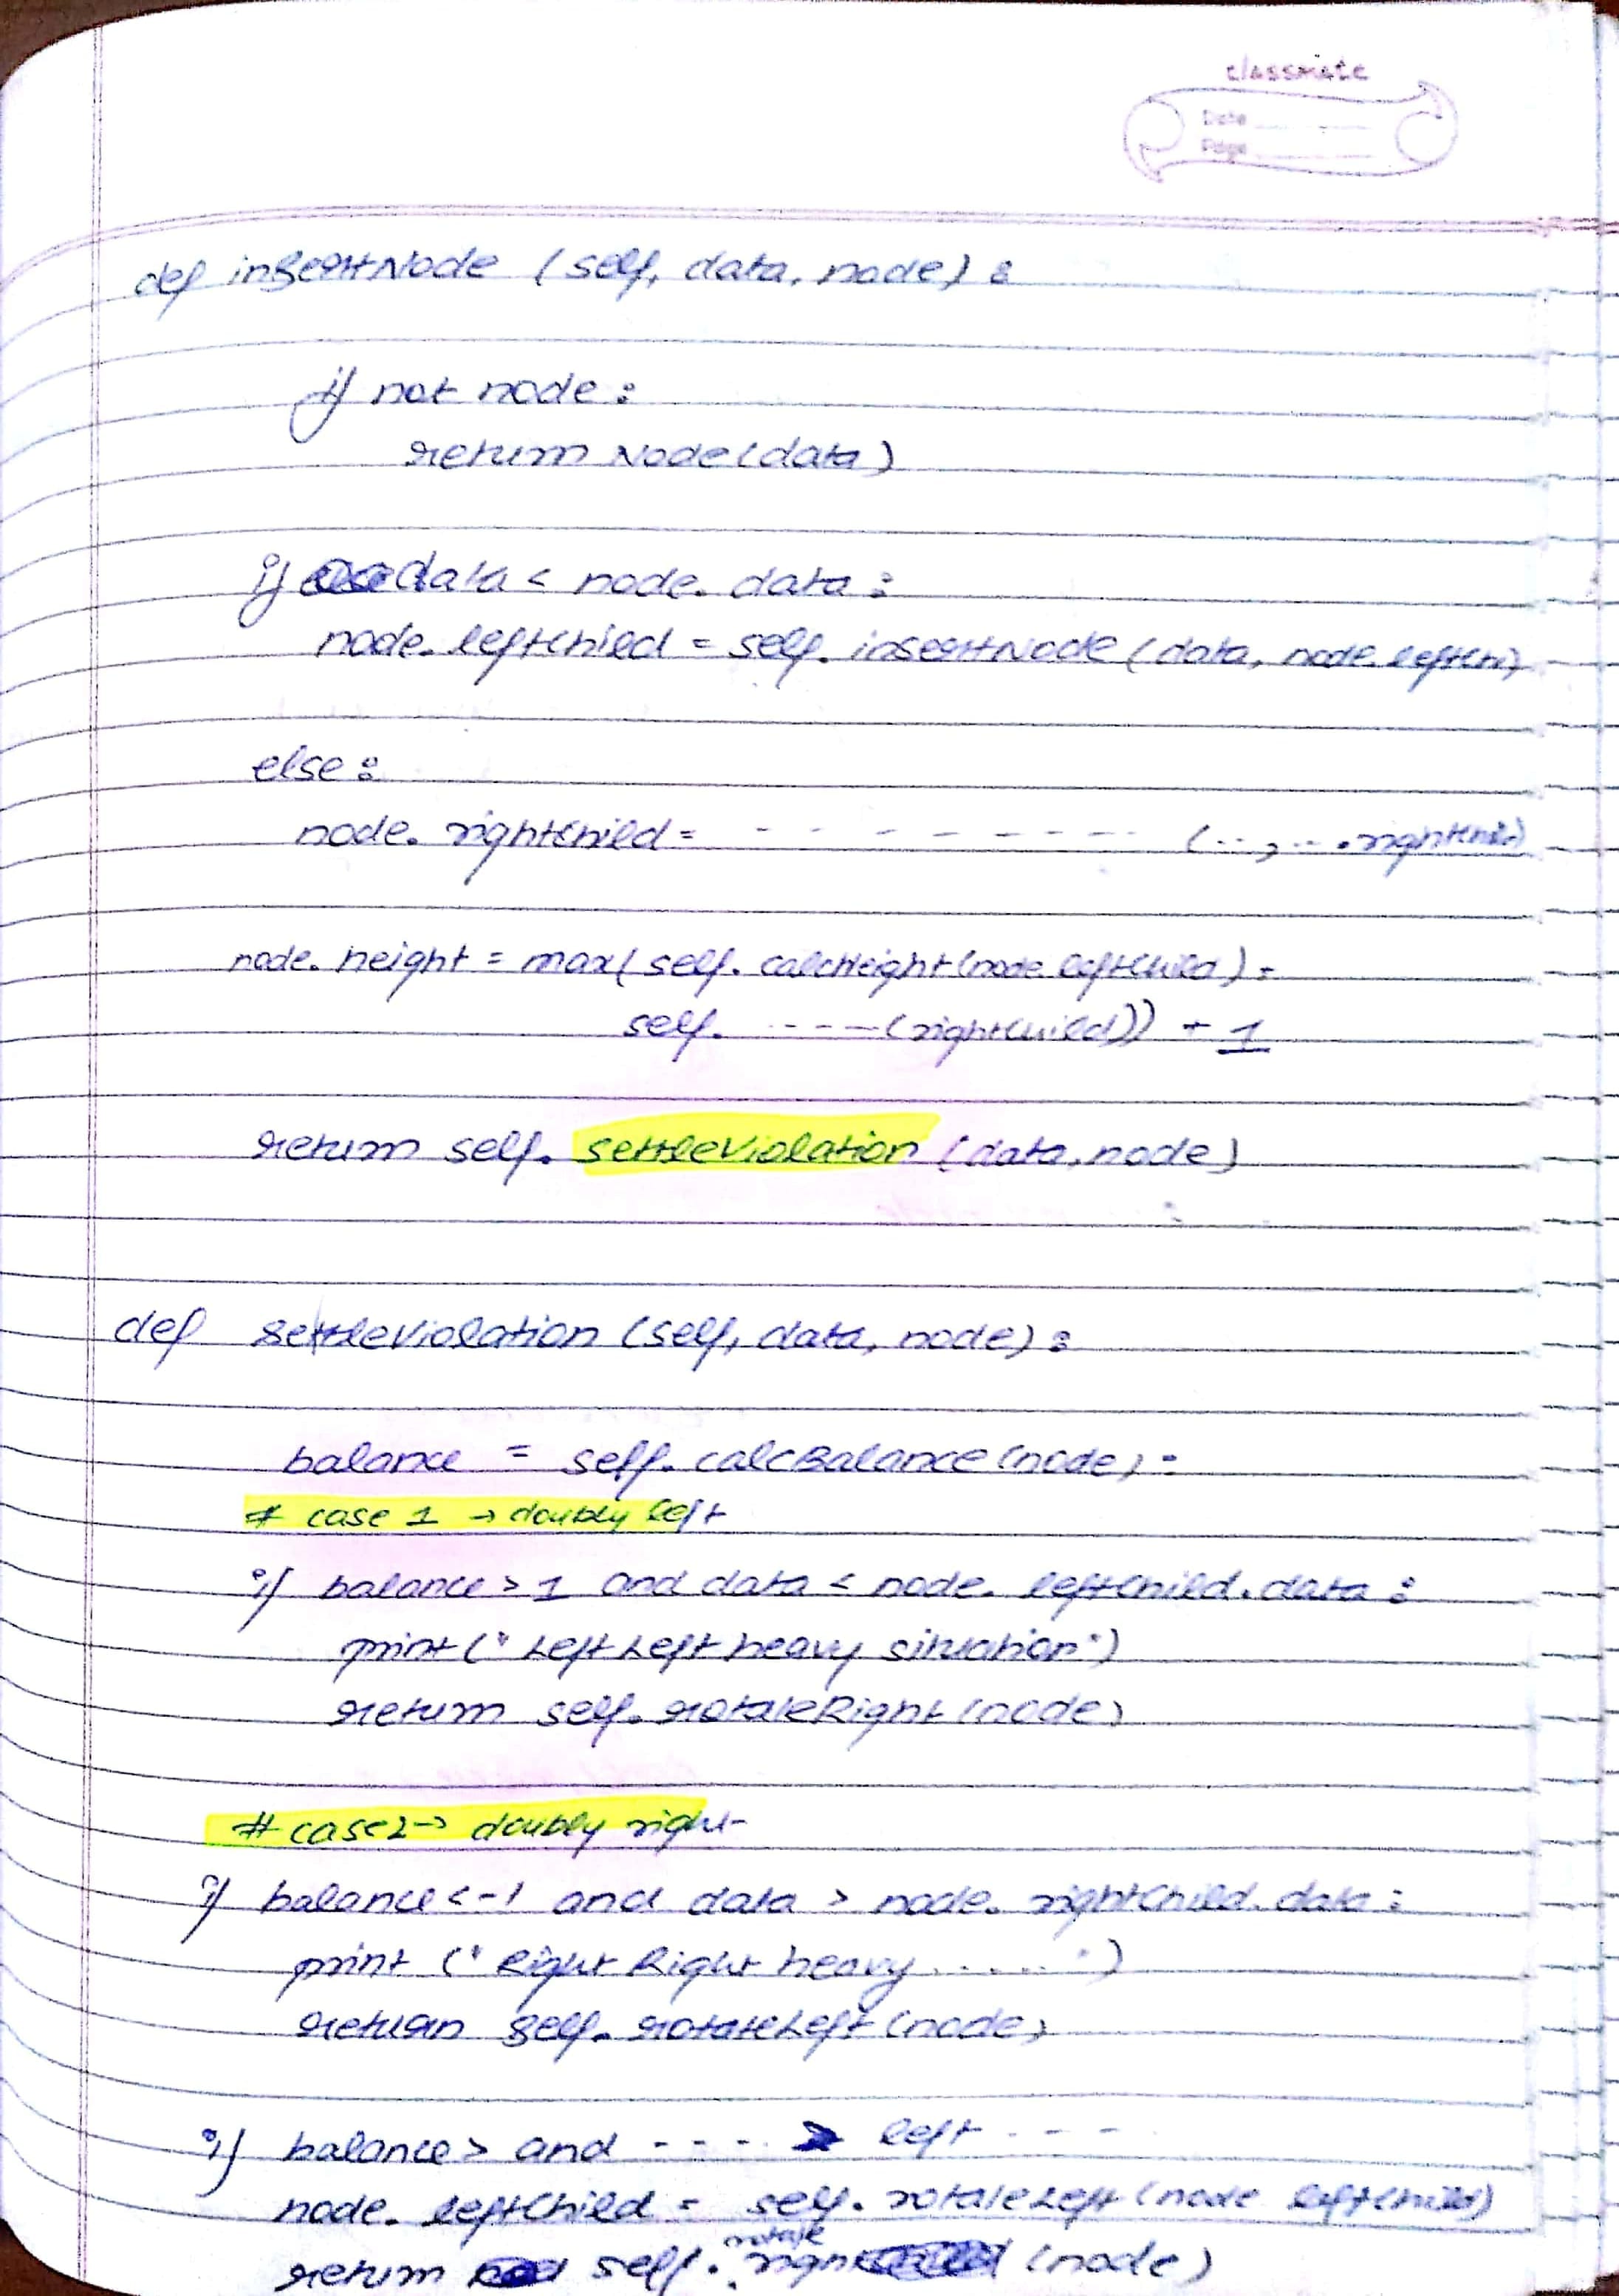 classmate
Date
Page
def insertNode (self, data, node) :
if not node :
return Node(data)
if data < node. data :
node. leftChild = self. insertNode (data, node.leftChi)
else :
node. rightChild = - - - - - - - - - - (..., ... .rightChild)
node. height = max( self. calcHeight(node leftChild) :
self. ----(rightChild)) + 1
return self. settleViolation (data, node)
def settleViolation (self, data, node) :
balance = self. calcBalance(node) :
# case 1 → doubly left
if balance > 1 and data < node. leftChild. data :
print (" Left Left heavy situation")
return self. rotateRight (node)
# case2→ doubly right
if balance <-1 and data > node. rightChild. data :
print (" Right Right heavy ...... ")
return self. rotateLeft (node)
if balance > and - - - - > left - - - -
node. leftChild = self. rotateLeft (node leftChild)
return self. rotate right (node)